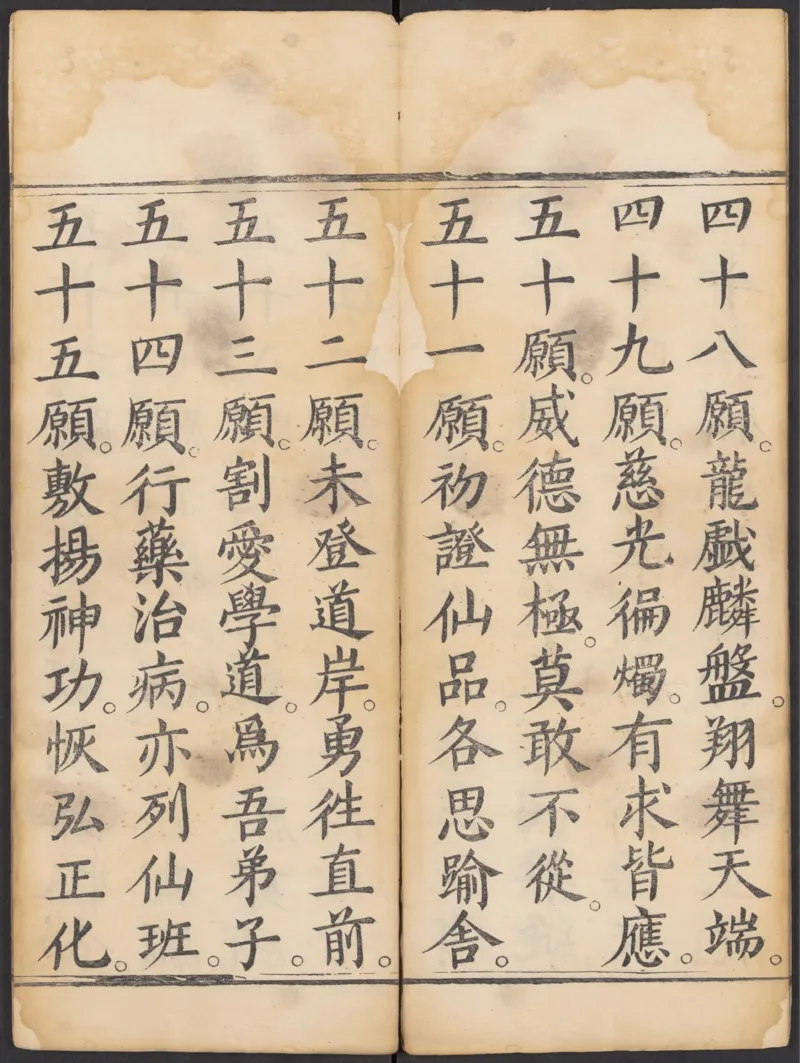 四十八願。龍戯麟盤。翔舞天端。
四十九願。慈光徧燭。有求皆應。
五十願。威德無極。莫敢不從。
五十一願。初證仙品。各思踰舎。
五十二願。未登道岸。勇徃直前。
五十三願。割愛學道。爲吾弟子。
五十四願。行藥治病。亦列仙班。
五十五願。敷揚神功。恢弘正化。